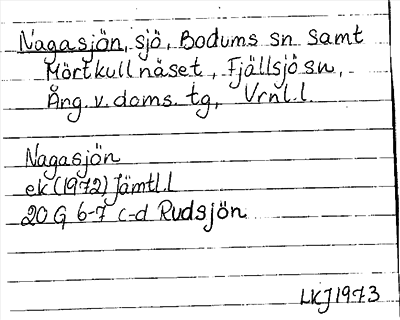 Nagasjön, sjö, Bodums sn samt
Mörtkullnäset, Fjällsjö sn,
Ång. v. doms. tg, Vrnl.l.
Nagasjön
ek (1972) Jämtl.l
20 G 6-7 c-d Rudsjön
LKJ 1973